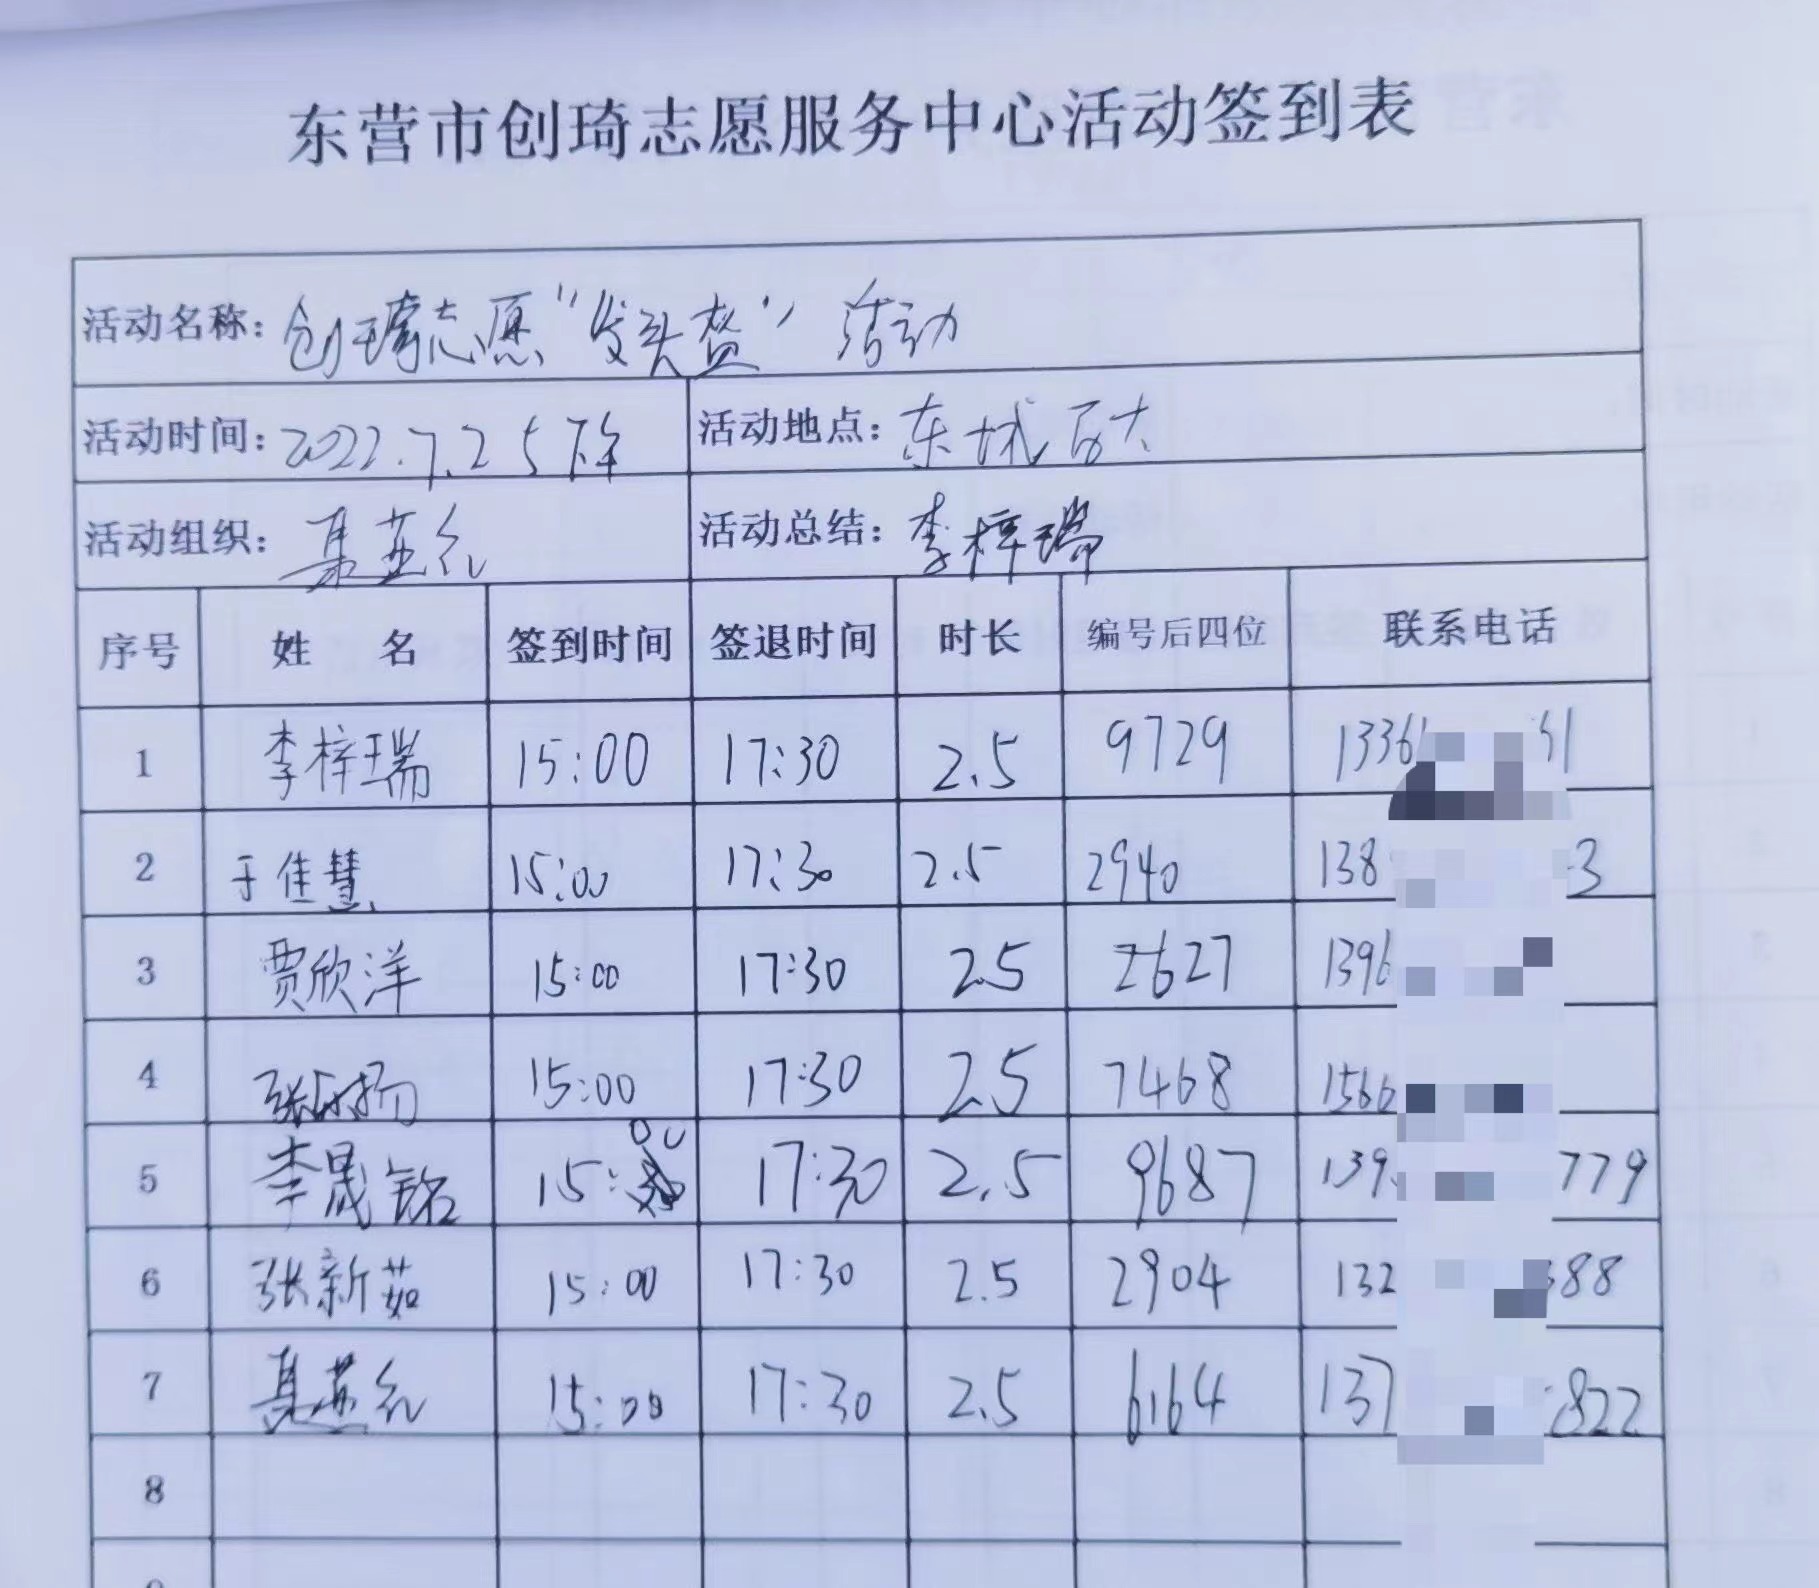 东营市创琦志愿服务中心活动签到表
活动名称：创琦志愿“发头盔”活动
活动时间：2022.7.25下午 活动地点：东城石大
活动组织： 活动总结：李梓瑞
序号 姓 名 签到时间 签退时间 时长 编号后四位 联系电话
1 李梓瑞 15:00 17:30 2.5 9729 1336
2 于佳慧 15:00 17:30 2.5 2940 138 3
3 贾欣洋 15:00 17:30 2.5 2627 1396
4 15:00 17:30 2.5 7468 1566
5 李晟铭 15:00 17:30 2.5 9687 139 779
6 张新茹 15:00 17:30 2.5 2904 132 88
7 15:00 17:30 2.5 6164 137 822
8